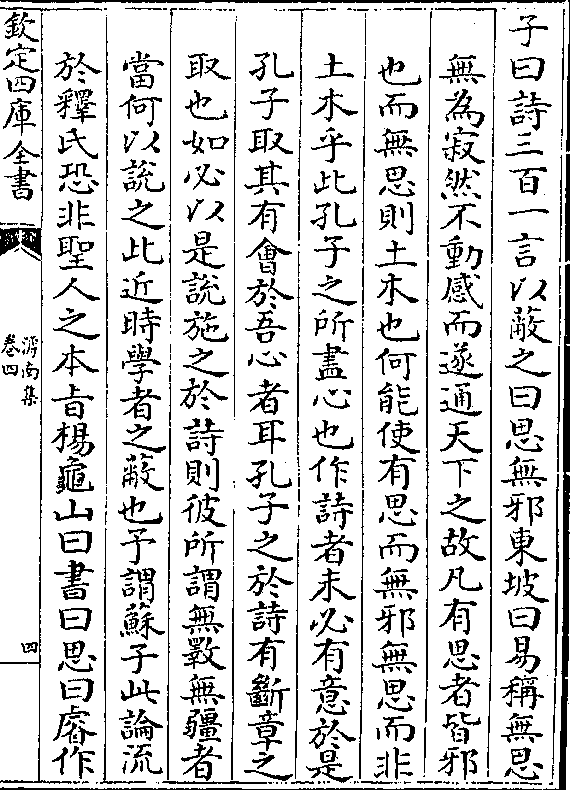 子曰詩三百一言以蔽之曰思無邪東坡曰易稱無思
無為寂然不動感而遂通天下之故凡有思者皆邪
也而無思則土木也何能使有思而無邪無思而非
土木乎此孔子之所盡心也作詩者未必有意於是
孔子取其有會於吾心者耳孔子之於詩有斷章之
取也如必以是說施之於詩則彼所謂無斁無疆者
當何以說之此近時學者之蔽也予謂蘇子此論流
於釋氏恐非聖人之本旨楊龜山曰書曰思曰睿作
欽定四庫全書
滹南集
卷四
四